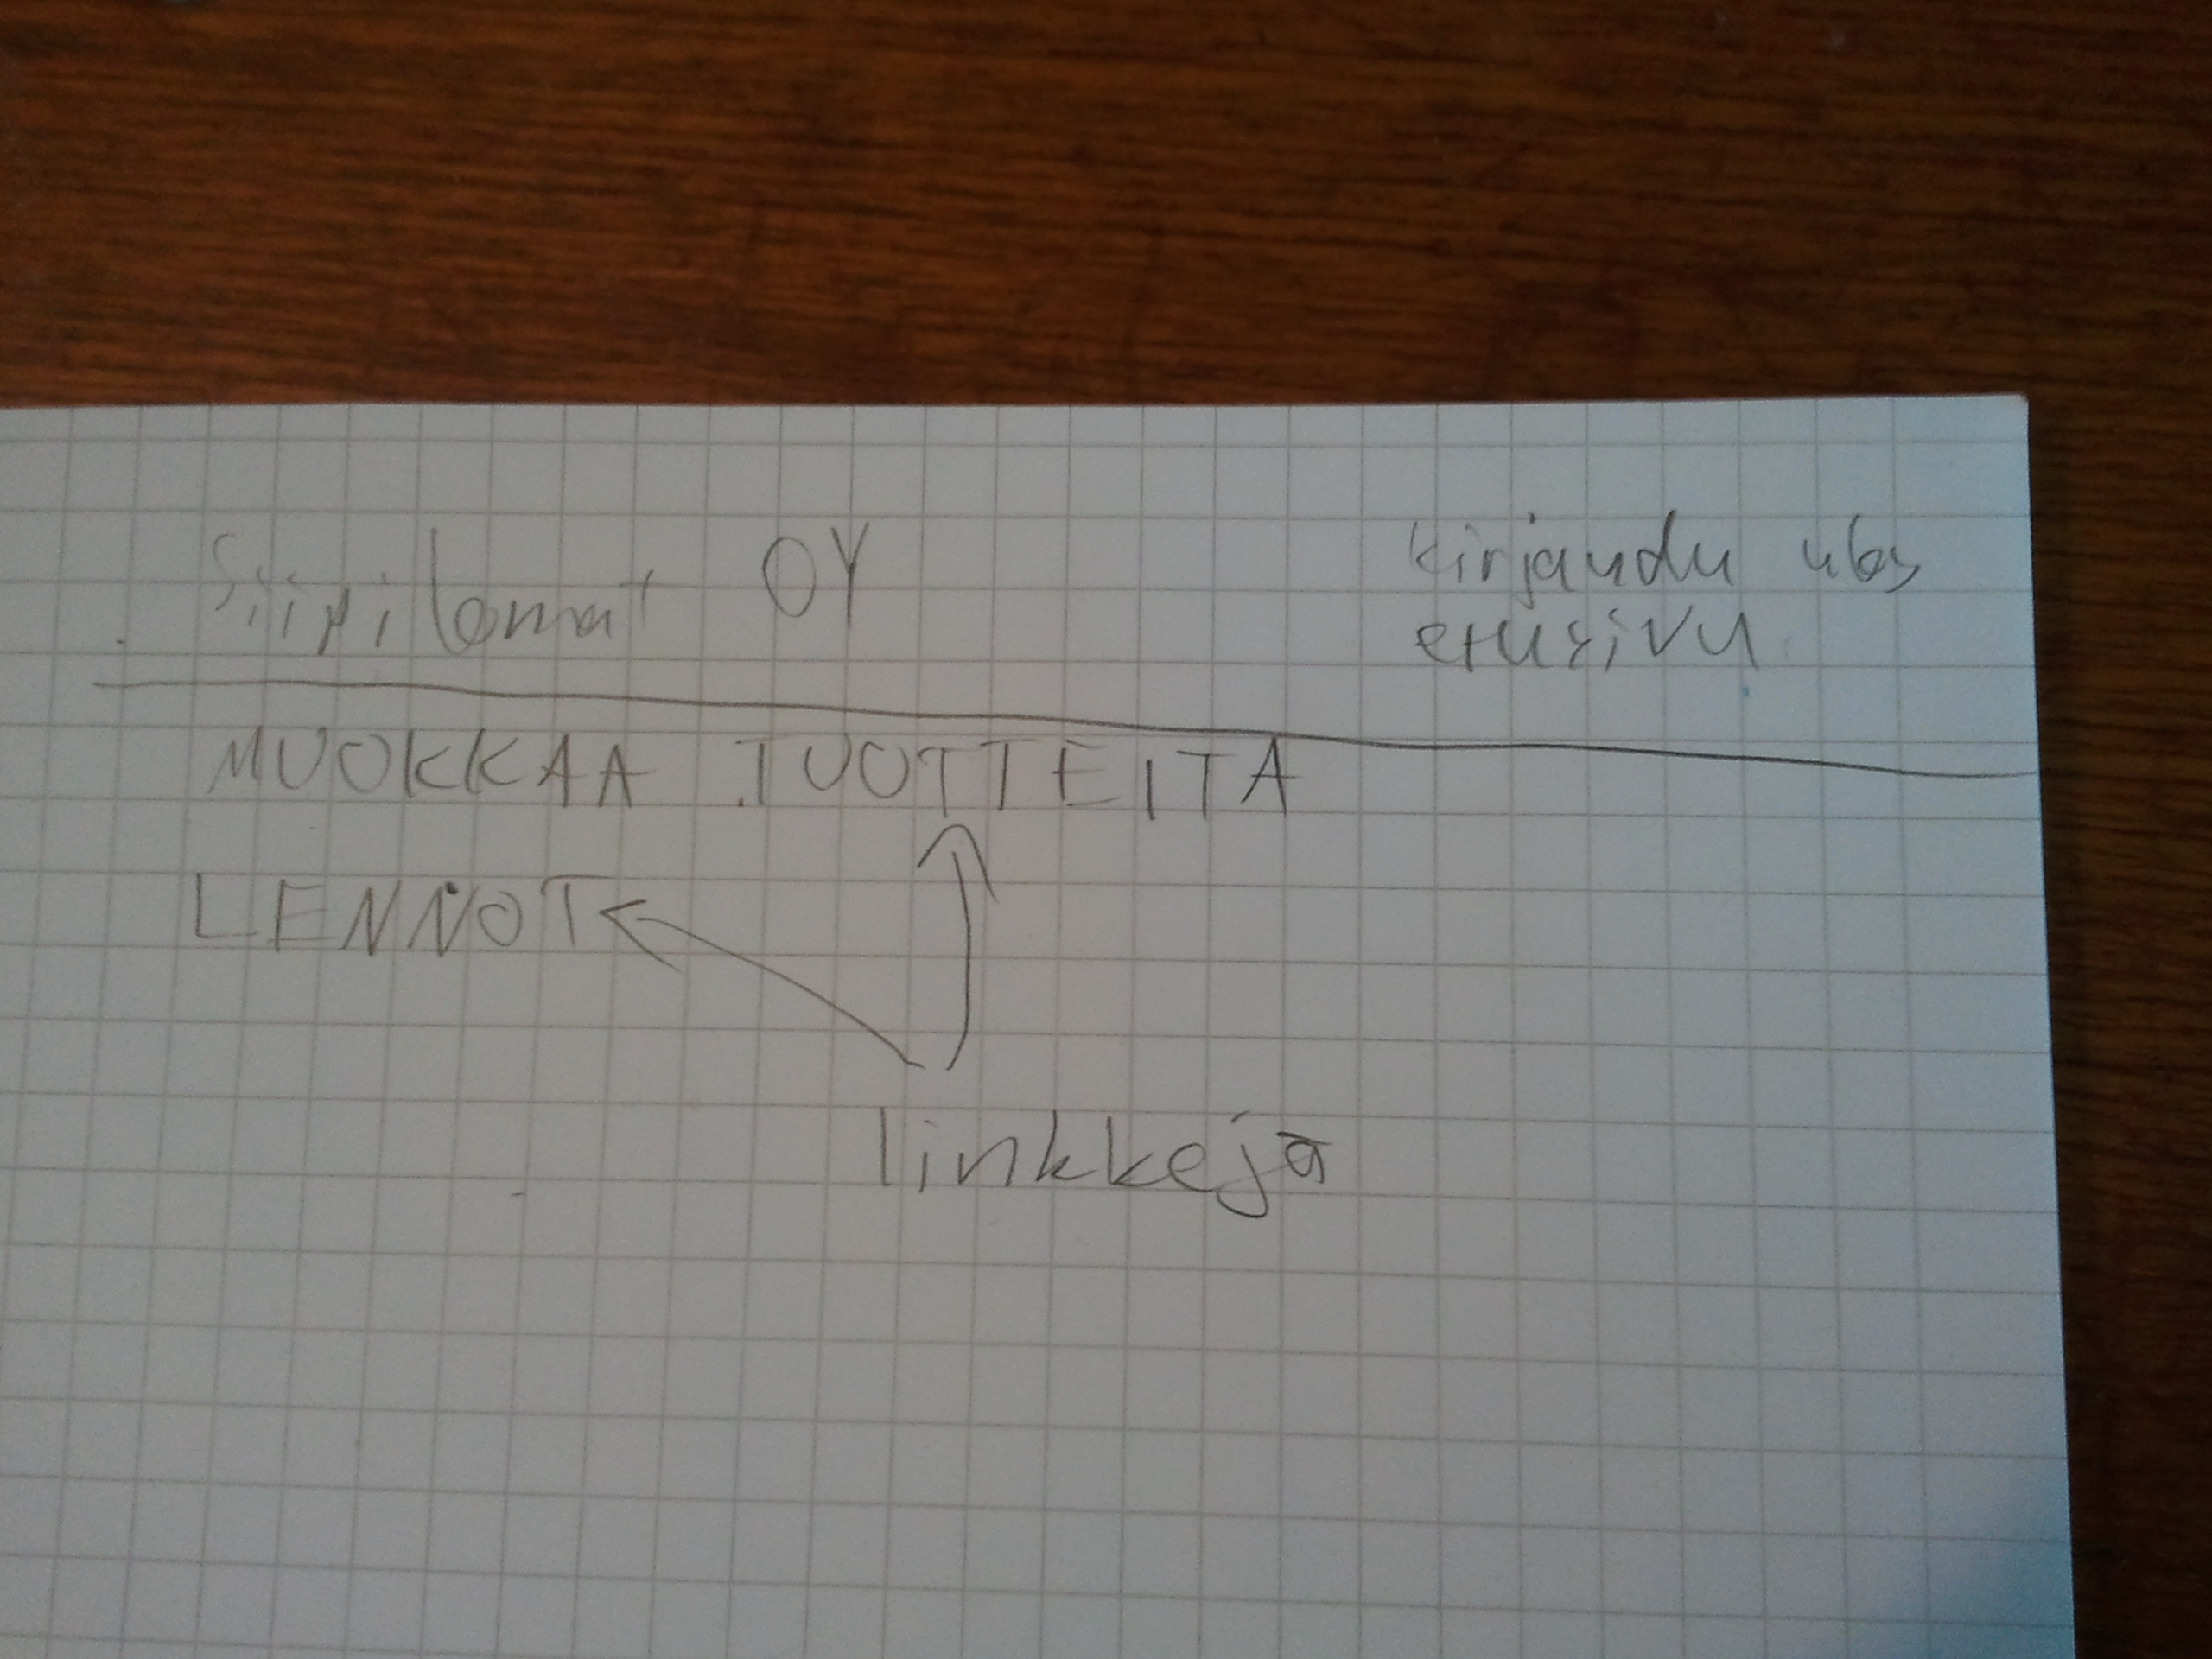 Siiri lomat OY
kirjaudu ulos
etusivu
MUOKKAA TUOTTEITA
LENNOT
linkkejä